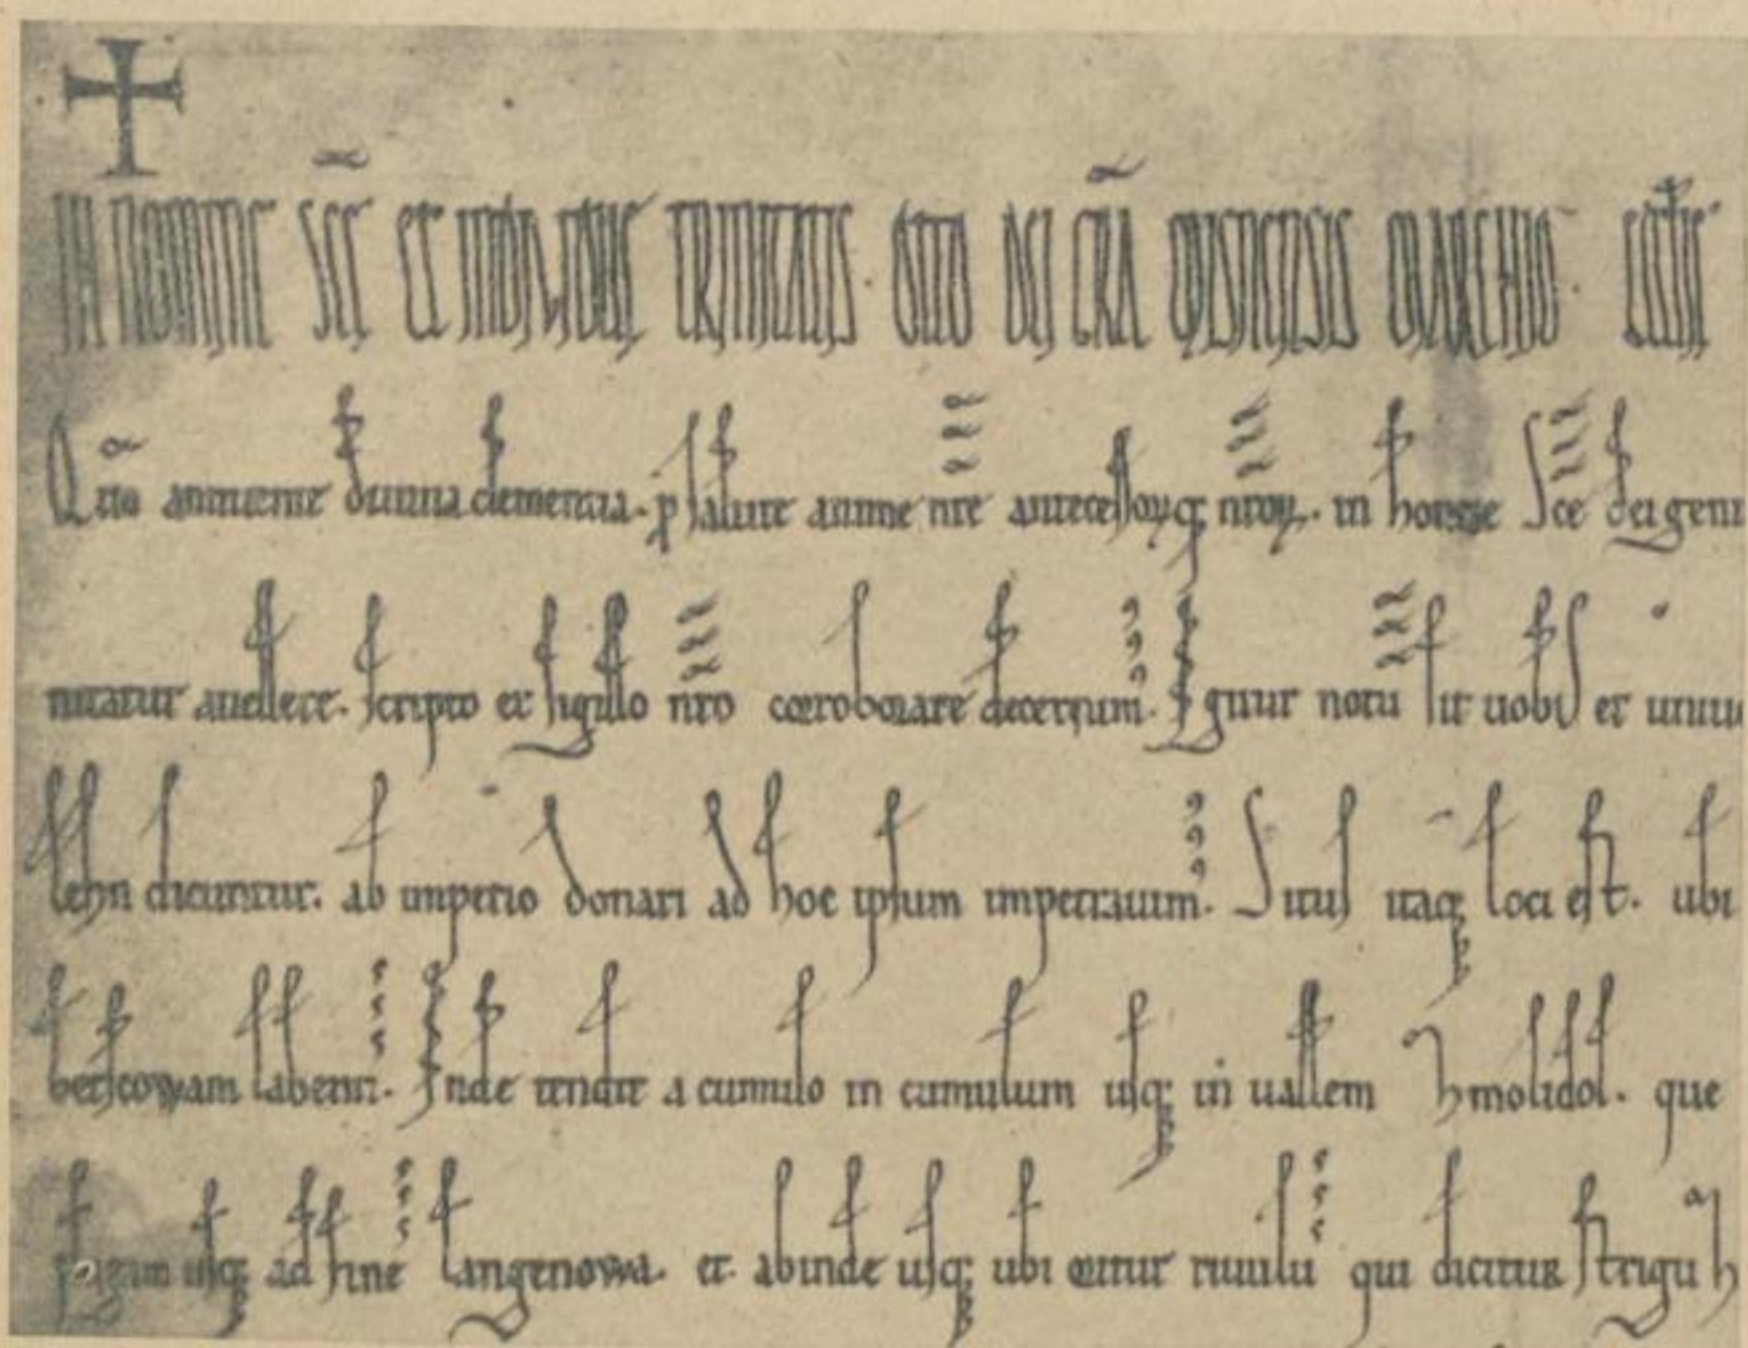 IN NOMINE SCE ET INDIVIDUE TRINITATIS. OTTO DEI GRA MISNENSIS MARCHIO.
Qm annuente diuina clementia. p salute anime nre antecessorꝝq; nroꝝ. in honore Sce dei geni
nitatur auellere. scripto et sigillo nro corroborare decernim᾿. Igitur notū sit uobis et uniu
lehn dicuntur. ab imperio donari ad hoc ipsum impetrauim᾿. Situs itaq; loci est. ubi
bescowam labentē. Inde tendit a cumulo in cumulum usq; in uallem hmolidol. que
usq; ad finē langenowa. et abinde usq; ubi oritur riuulū qui dicitur striguh